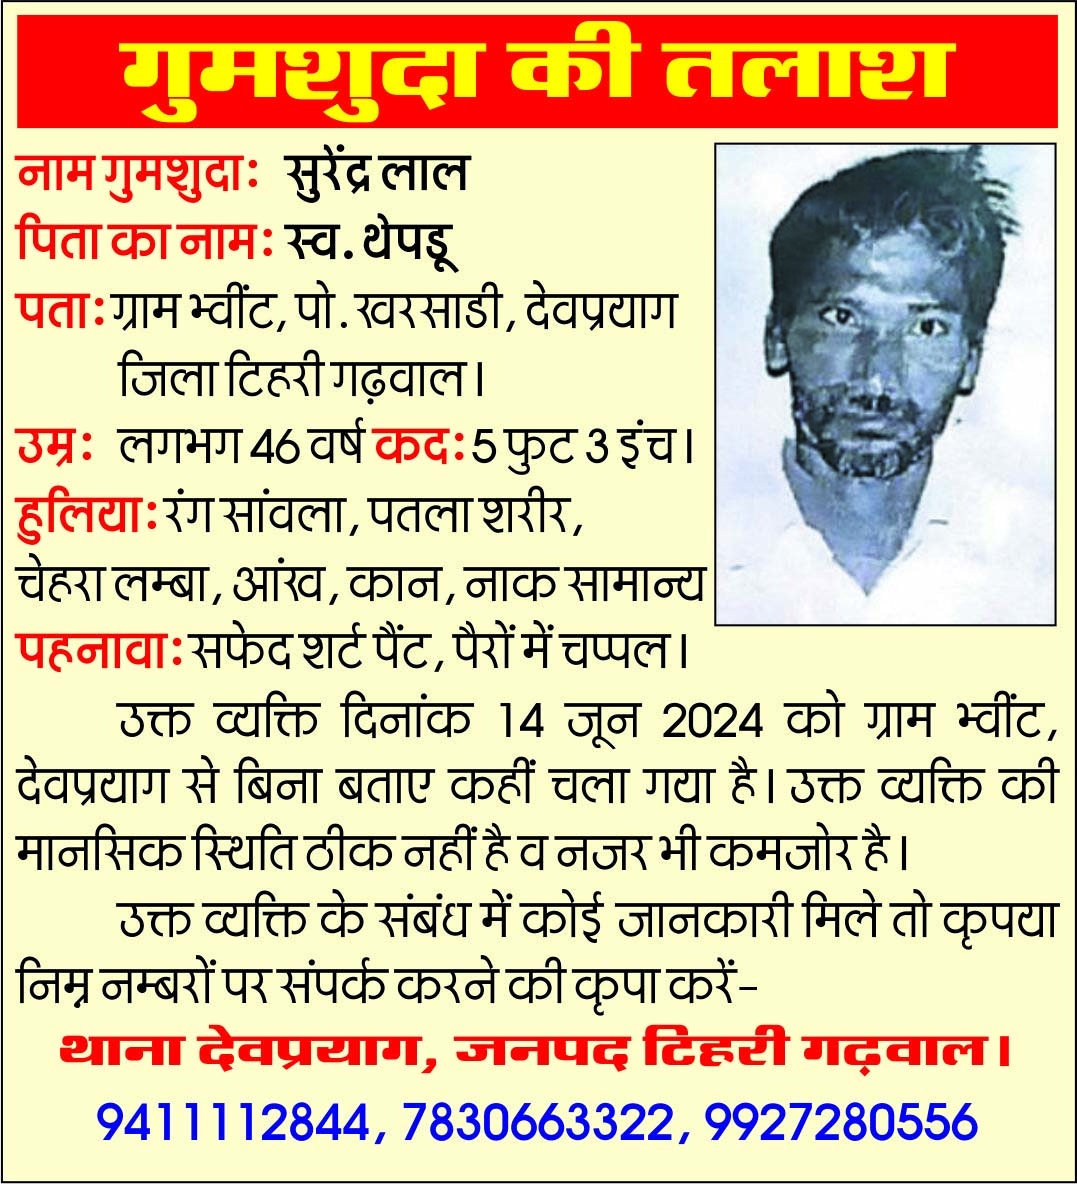 गुमशुदा की तलाश
नाम गुमशुदाः सुरेंद्र लाल
पिता का नामः स्व. थेपडू
पताः ग्राम भ्वींट, पो. खरसाडी, देवप्रयाग
जिला टिहरी गढ़वाल।
उम्रः लगभग 46 वर्ष कदः 5 फुट 3 इंच।
हुलियाः रंग सांवला, पतला शरीर,
चेहरा लम्बा, आंख, कान, नाक सामान्य
पहनावाः सफेद शर्ट पैंट, पैरों में चप्पल।
उक्त व्यक्ति दिनांक 14 जून 2024 को ग्राम भ्वींट,
देवप्रयाग से बिना बताए कहीं चला गया है। उक्त व्यक्ति की
मानसिक स्थिति ठीक नहीं है व नजर भी कमजोर है।
उक्त व्यक्ति के संबंध में कोई जानकारी मिले तो कृपया
निम्न नम्बरों पर संपर्क करने की कृपा करें-
थाना देवप्रयाग, जनपद टिहरी गढ़वाल।
9411112844, 7830663322, 9927280556